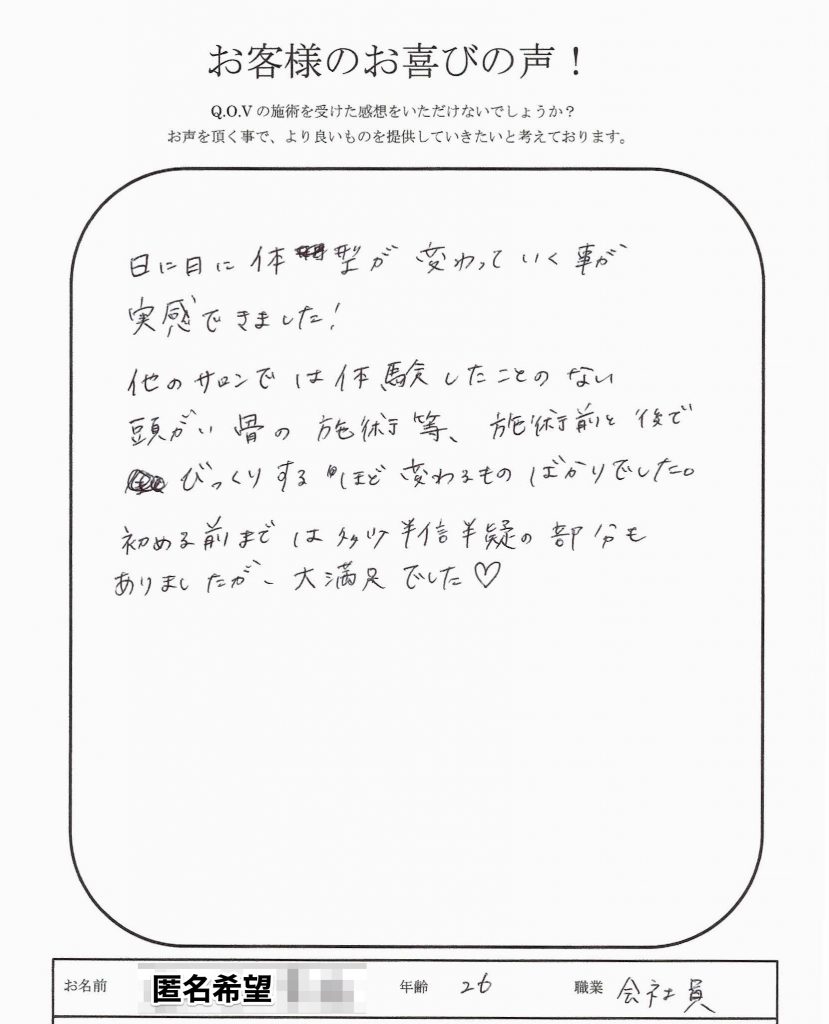 お客様のお喜びの声！
Q.O.V の施術を受けた感想をいただけないでしょうか？
お声を頂く事で、より良いものを提供していきたいと考えております。
日に日に体型が変わっていく事が
実感できました！
他のサロンでは体験したことのない
頭がい骨の施術等、施術前と後で
びっくりするほど変わるものばかりでした。
初める前までは多少半信半疑の部分も
ありましたが、大満足でした♡
お名前 匿名希望 年齢 26 職業 会社員